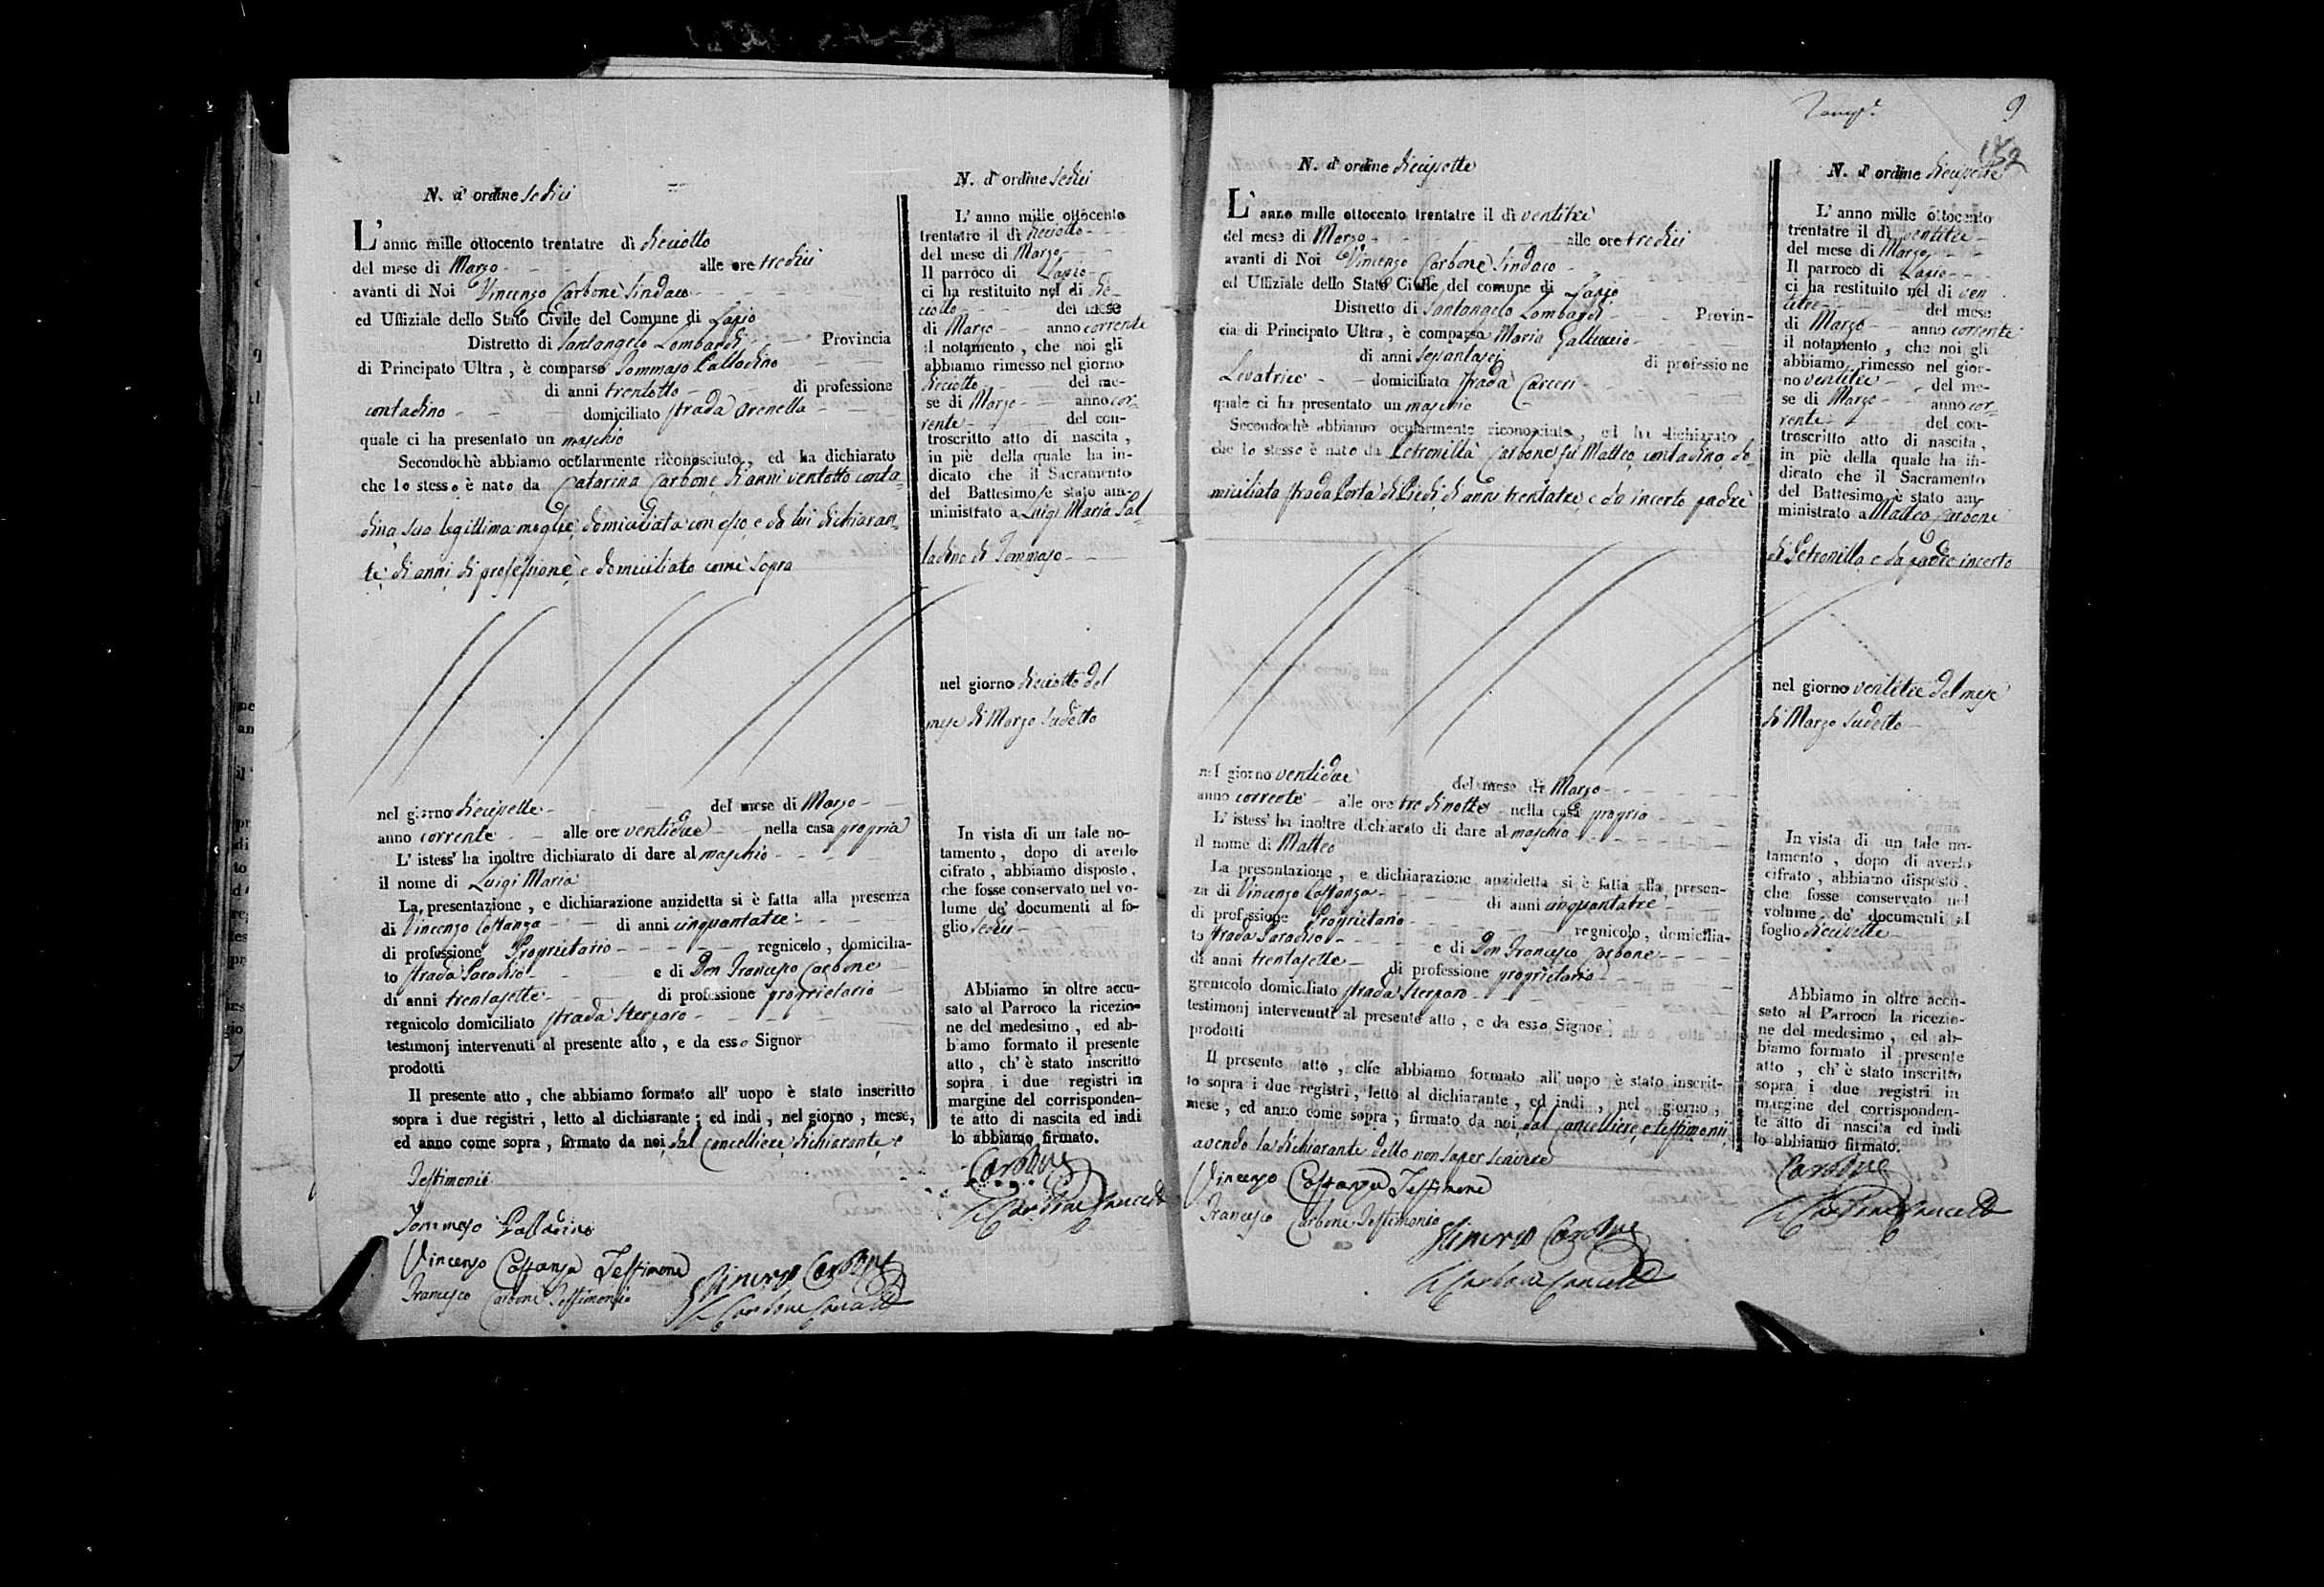 N. d' ordine sedici
L' anno mille ottocento trentatre dì dieciotto
del mese di Marzo alle ore tredici
avanti di Noi Vincenzo Carbone Sindaco
ed Uffiziale dello Stato Civile del Comune di Lapio
Distretto di Santangelo Lombardi Provincia
di Principato Ultra, è comparso Tommaso Palladino
di anni trentotto di professione
contadino domiciliato strada Arenella
quale ci ha presentato un maschio
Secondochè abbiamo ocularmente riconosciuto, ed ha dichiarato
che lo stesso è nato da Catarina Carbone di anni ventotto conta-
dina, sua legittima moglie, domiciliata con esso, e da lui dichiaran-
te, di anni, di professione, e domiciliato come sopra
nel giorno diecisette del mese di Marzo
anno corrente alle ore ventidue nella casa propria
L' istess' ha inoltre dichiarato di dare al maschio
il nome di Luigi Maria
La presentazione, e dichiarazione anzidetta si è fatta alla presenza
di Vincenzo Costanza di anni cinquantatre
di professione Proprietario regnicolo, domicilia-
to strada Paradiso e di Don Francesco Carbone
di anni trentasette di professione proprietario
regnicolo domiciliato strada Sterparo
testimonj intervenuti al presente atto, e da esso Signor
prodotti
Il presente atto, che abbiamo formato all' uopo è stato inscritto
sopra i due registri, letto al dichiarante; ed indi, nel giorno, mese,
ed anno come sopra, firmato da noi, dal Cancelliere, dichiarante, e
Testimonii
Tommaso Palladino
Vincenzo Costanza Testimone
Francesco Carbone Testimonio
Vincenzo Carbone
Carbone Cancell
N. d' ordine sedici
L' anno mille ottocento
trentatre il dì dieciotto
del mese di Marzo
Il parroco di Lapio
ci ha restituito nel di die-
ciotto del mese
di Marzo anno corrente
il notamento, che noi gli
abbiamo rimesso nel giorno
dieciotto del me-
se di Marzo anno cor-
rente del con-
troscritto atto di nascita,
in piè della quale ha in-
dicato che il Sacramento
del Battesimo è stato am-
ministrato a Luigi Maria Pal-
ladino di Tommaso
nel giorno dieciotto del
mese di Marzo sudetto
In vista di un tale no-
tamento, dopo di averlo
cifrato, abbiamo disposto,
che fosse conservato nel vo-
lume de' documenti al fo-
glio sedici
Abbiamo in oltre accu-
sato al Parroco la ricezio-
ne del medesimo, ed ab-
biamo formato il presente
atto, ch' è stato inscritto
sopra i due registri in
margine del corrisponden-
te atto di nascita ed indi
lo abbiamo firmato.
Carbone
Carbone Cancell
9
N. d' ordine diecisette
L' anno mille ottocento trentatre il dì ventitre
del mese di Marzo alle ore tredici
avanti di Noi Vincenzo Carbone Sindaco
ed Uffiziale dello Stato Civile del comune di Lapio
Distretto di Santangelo Lombardi Provin-
cia di Principato Ultra, è comparsa Maria Galluccio
di anni sessantasei di professione
Levatrice domiciliata strada Carceri
quale ci ha presentato un maschio
Secondochè abbiamo ocularmente riconosciuto, ed ha dichiarato
che lo stesso è nato da Petronilla Carbone fu Matteo, contadina, do-
miciliata strada Porta di Piedi, di anni trentatre, e da incerto padre
nel giorno ventidue del mese di Marzo
anno corrente alle ore tre di notte nella casa propria
L' istess' ha inoltre dichiarato di dare al maschio
il nome di Matteo
La presentazione, e dichiarazione anzidetta si è fatta alla presen-
za di Vincenzo Costanza di anni cinquantatre
di professione Proprietario regnicolo, domicilia-
to strada Paradiso e di Don Francesco Carbone
di anni trentasette di professione proprietario
grenicolo domiciliato strada Sterparo
testimonj intervenuti al presente atto, e da esso Signor
prodotti
Il presente atto, che abbiamo formato all' uopo è stato inscrit-
to sopra i due registri, letto al dichiarante, ed indi, nel giorno,
mese, ed anno come sopra, firmato da noi, dal Cancelliere, e testimonii,
avendo la dichiarante detto non saper scrivere
Vincenzo Costanza Testimone
Francesco Carbone Testimonio
Vincenzo Carbone
Carbone Cancell
N. d' ordine diecisette
L' anno mille ottocento
trentatre il dì ventitre
del mese di Marzo
Il parroco di Lapio
ci ha restituito nel di ven
titre del mese
di Marzo anno corrente
il notamento, che noi gli
abbiamo rimesso nel gior-
no ventitre del me-
se di Marzo anno cor-
rente del con-
troscritto atto di nascita,
in piè della quale ha in-
dicato che il Sacramento
del Battesimo è stato am-
ministrato a Matteo Carbone
di Petronilla e da padre incerto
nel giorno ventitre del mese
di Marzo sudetto
In vista di un tale no-
tamento, dopo di averlo
cifrato, abbiamo disposto,
che fosse conservato nel
volume de' documenti al
foglio diecisette
Abbiamo in oltre accu-
sato al Parroco la ricezio-
ne del medesimo, ed ab-
biamo formato il presente
atto, ch' è stato inscritto
sopra i due registri in
margine del corrisponden-
te atto di nascita ed indi
lo abbiamo firmato.
Carbone
Carbone Cancell